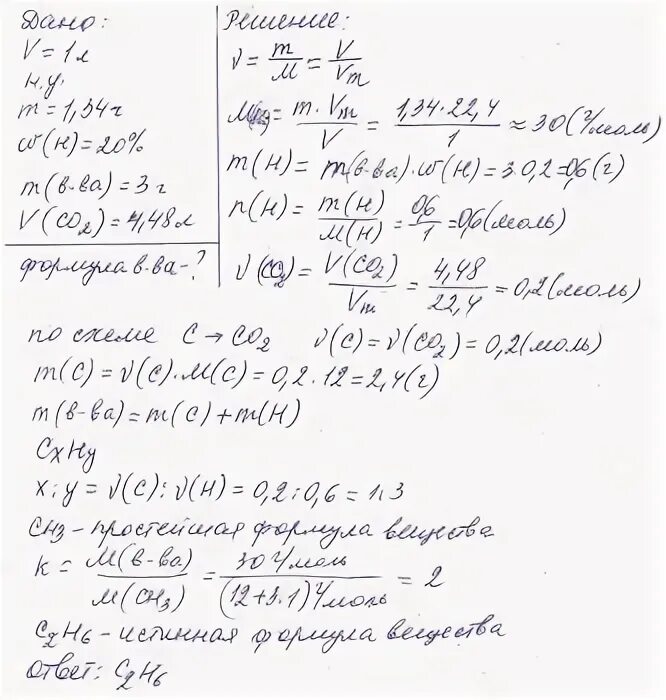 Дано:
V = 1 л
н.у.
m = 1,34 г
ω(H) = 20%
m(в-ва) = 3 г
V(CO₂) = 4,48 л
формула в-ва - ?
Решение:
ν = m/M = V/Vm
M = m · Vm / V = 1,34 · 22,4 / 1 ≈ 30 (г/моль)
m(H) = m(в-ва) · ω(H) = 3 · 0,2 = 0,6 (г)
n(H) = m(H)/M(H) = 0,6/1 = 0,6 (моль)
ν(CO₂) = V(CO₂)/Vm = 4,48/22,4 = 0,2 (моль)
по схеме C → CO₂ ν(C) = ν(CO₂) = 0,2 (моль)
m(C) = ν(C) · M(C) = 0,2 · 12 = 2,4 (г)
m(в-ва) = m(C) + m(H)
CxHy
x : y = ν(C) : ν(H) = 0,2 : 0,6 = 1:3
CH₃ - простейшая формула вещества
k = M(в-ва)/M(CH₃) = 30 г/моль / (12+3·1) г/моль = 2
C₂H₆ - истинная формула вещества
ответ: C₂H₆